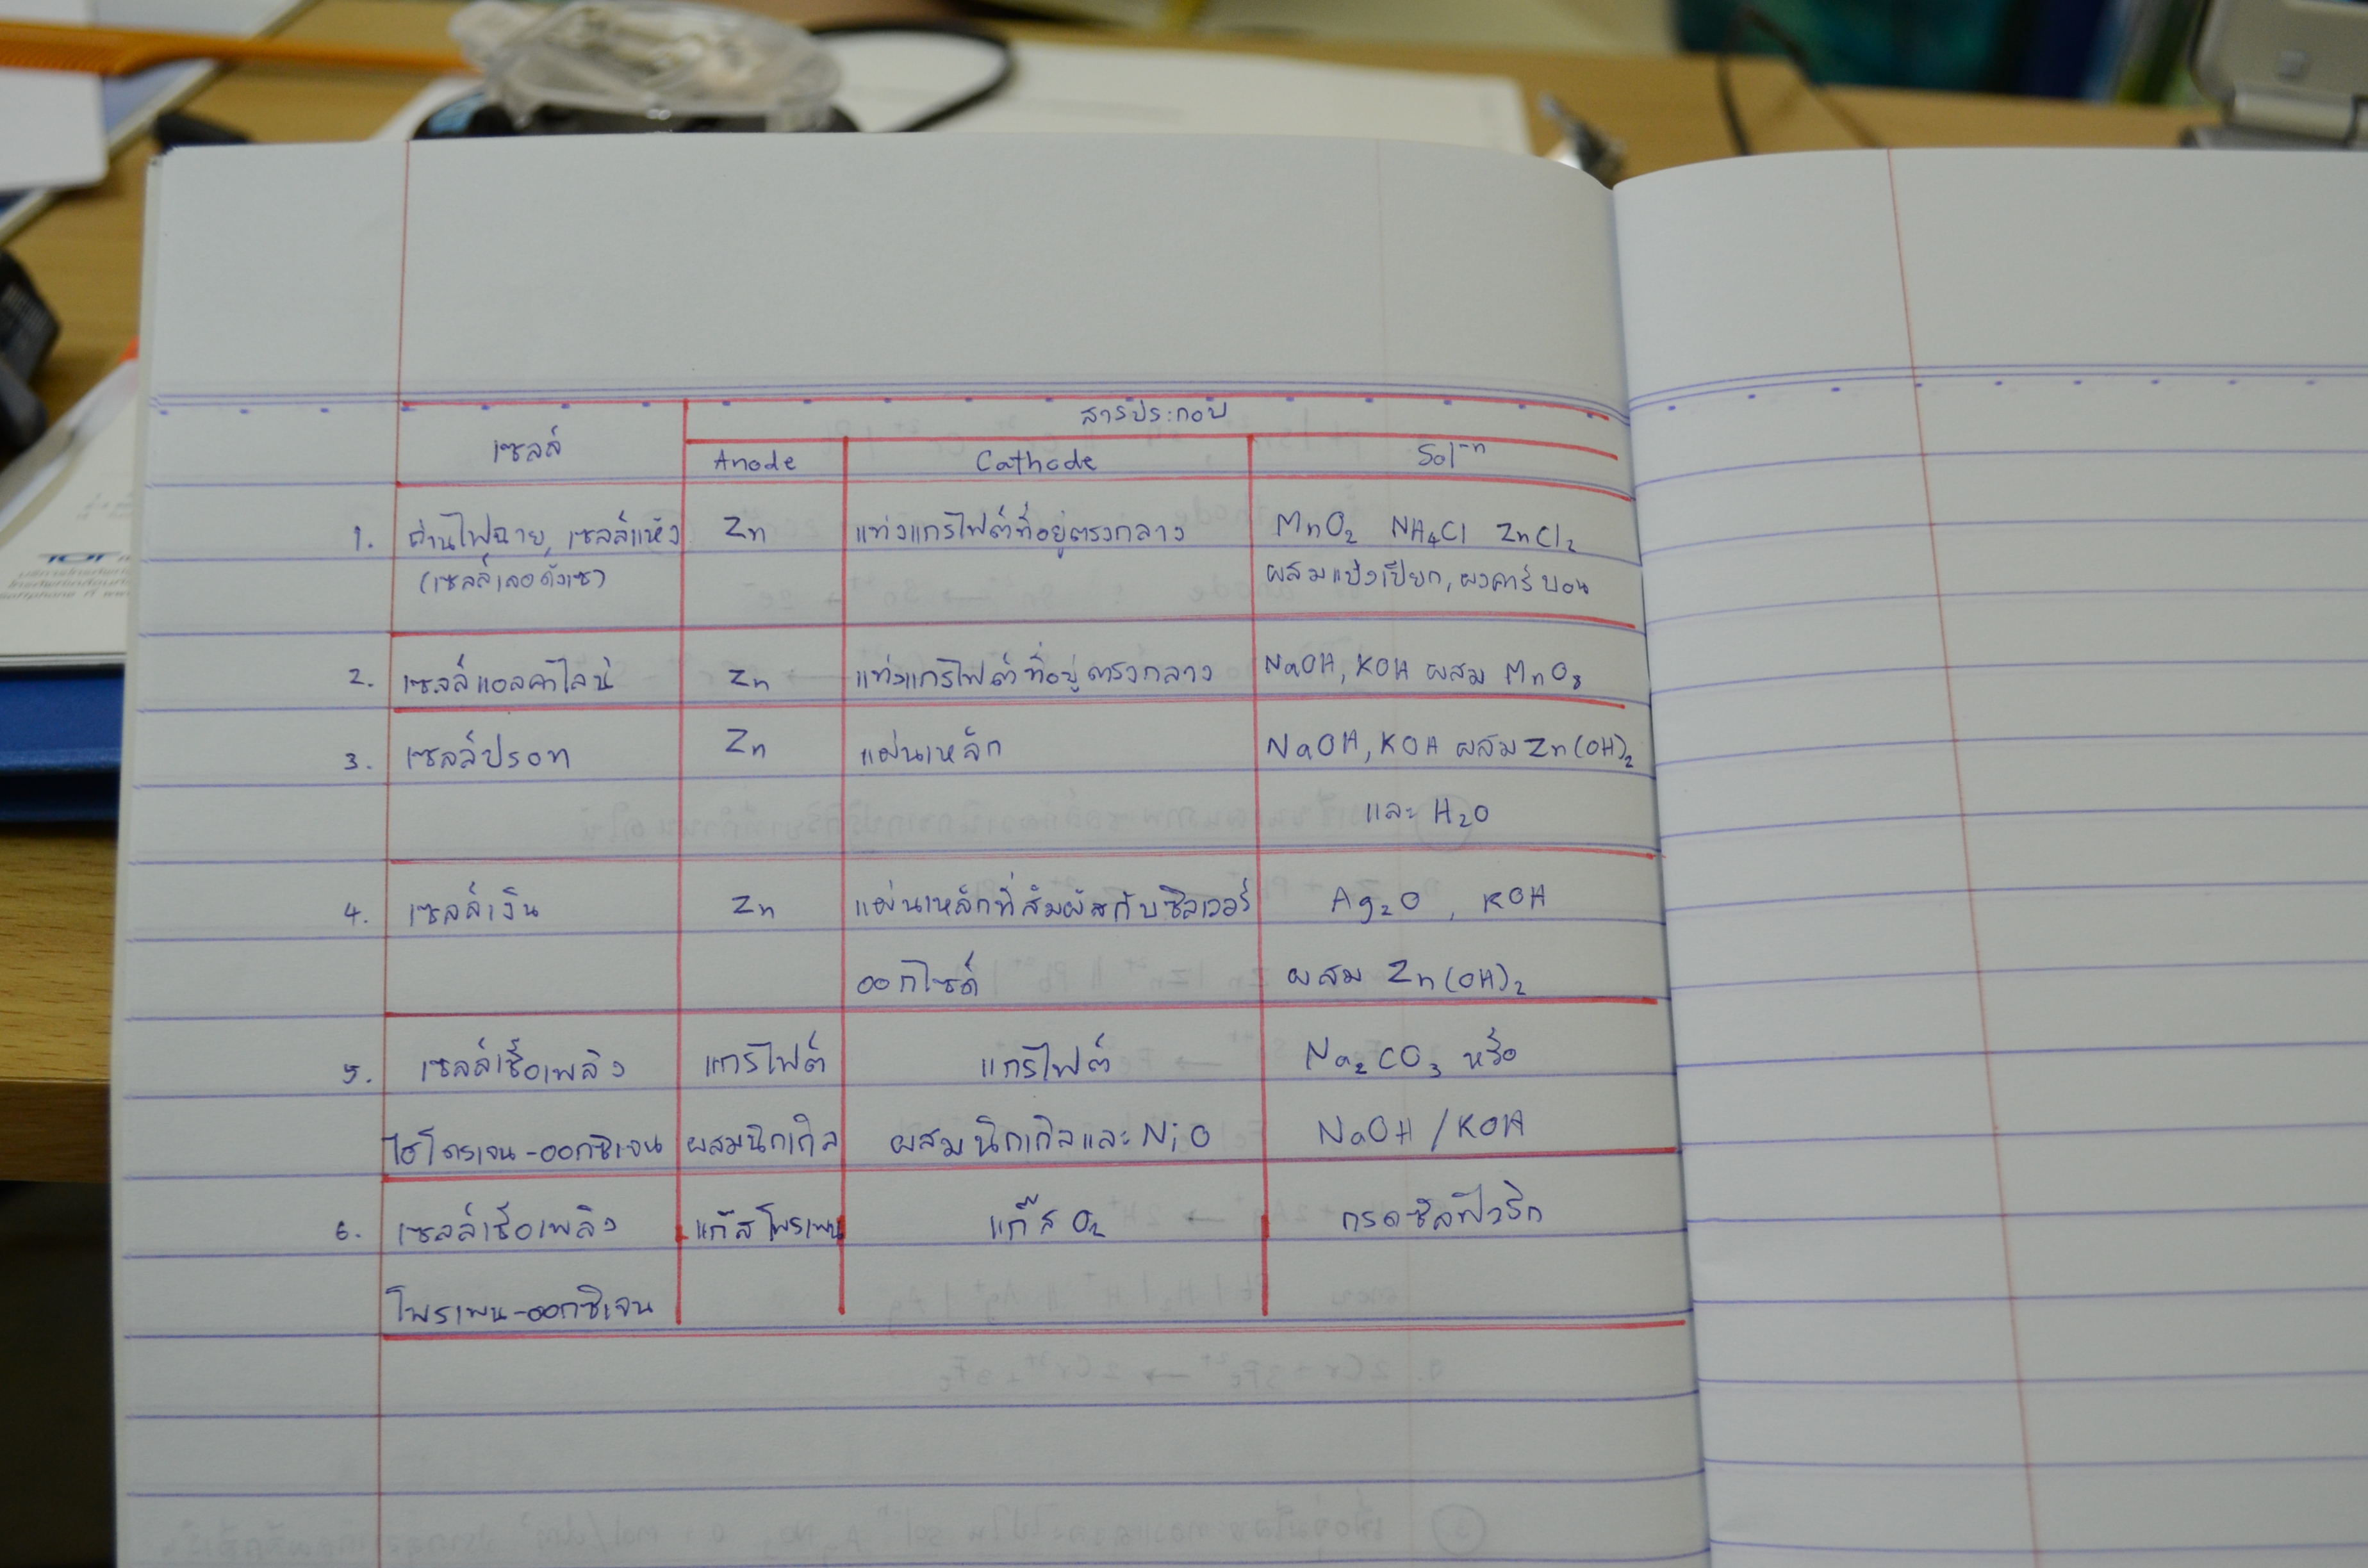 สารประกอบ
เซลล์ Anode Cathode Sol-n
1. ถ่านไฟฉาย, เซลล์แห้ง Zn แท่งแกรไฟต์ที่อยู่ตรงกลาง MnO2 NH4Cl ZnCl2
(เซลล์เลอคังเช) ผสมแป้งเปียก, ผงคาร์บอน
2. เซลล์แอลคาไลน์ Zn แท่งแกรไฟต์ที่อยู่ตรงกลาง NaOH, KOH ผสม
3. เซลล์ปรอท Zn แผ่นเหล็ก NaOH, KOH ผสม Zn(OH)2
และ H2O
4. เซลล์เงิน Zn แผ่นเหล็กที่สัมผัสกับซิลเวอร์ Ag2O , KOH
ออกไซด์ ผสม Zn(OH)2
5. เซลล์เชื้อเพลิง แกรไฟต์ แกรไฟต์ Na2CO3 หรือ
ไฮโดรเจน-ออกซิเจน ผสมนิกเกิล ผสมนิกเกิลและ NiO NaOH/KOH
6. เซลล์เชื้อเพลิง แก๊สโพรเพน แก๊ส O2 กรดซัลฟิวริก
โพรเพน-ออกซิเจน